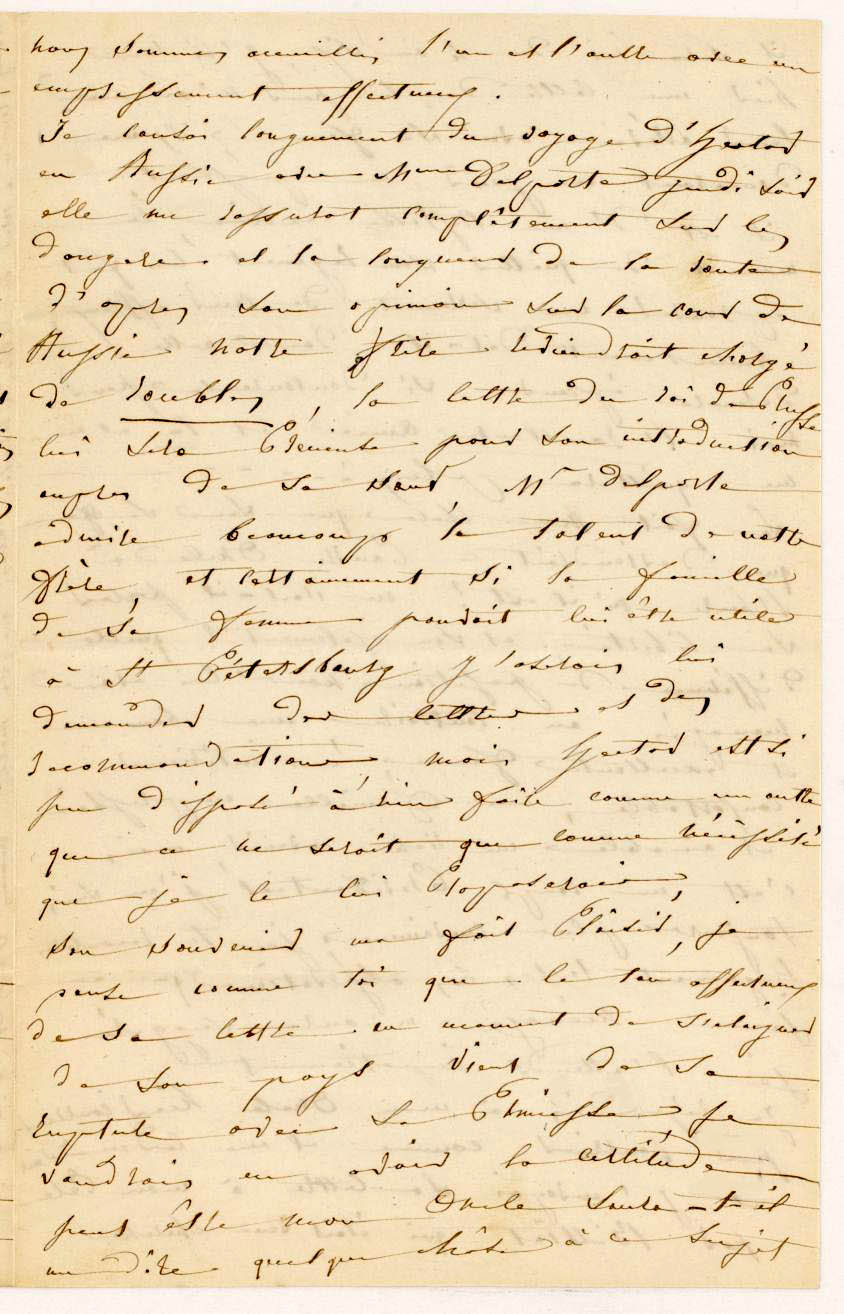 nous sommes accueillis l'un et l'autre avec un
empressement affectueux.
Je causai longuement du voyage d'Hector
en Russie avec Mme Delporte jeudi soir
elle me rassurat complètement sur les
dangers et la longueur de la route
d'après son opinion sur la cour de
Russie notre frère reviendrait chargé
de roubles, la lettre du roi de Prusse
lui sera Précieuse pour son introduction
auprès de sa sœur, Mr delporte
admire beaucoup le talent de notre
frère, et certainement si la famille
de sa femme pouvait lui être utile
à St Pétersbourg j'oserais lui
demander des lettres et des
recommandations mais Hector est si
peu disposé à rien faire comme un autre
que ce ne serait que comme nécessité
que je le lui Proposerais,
son souvenir me fait Plaisir, je
pense comme toi que le ton affectueux
de sa lettre au moment de s'éloigner
de son pays vient de sa
rupture avec sa Princesse je
voudrais en avoir la certitude
peut être mon Oncle saura-t-il
me dire quelque chose à ce sujet